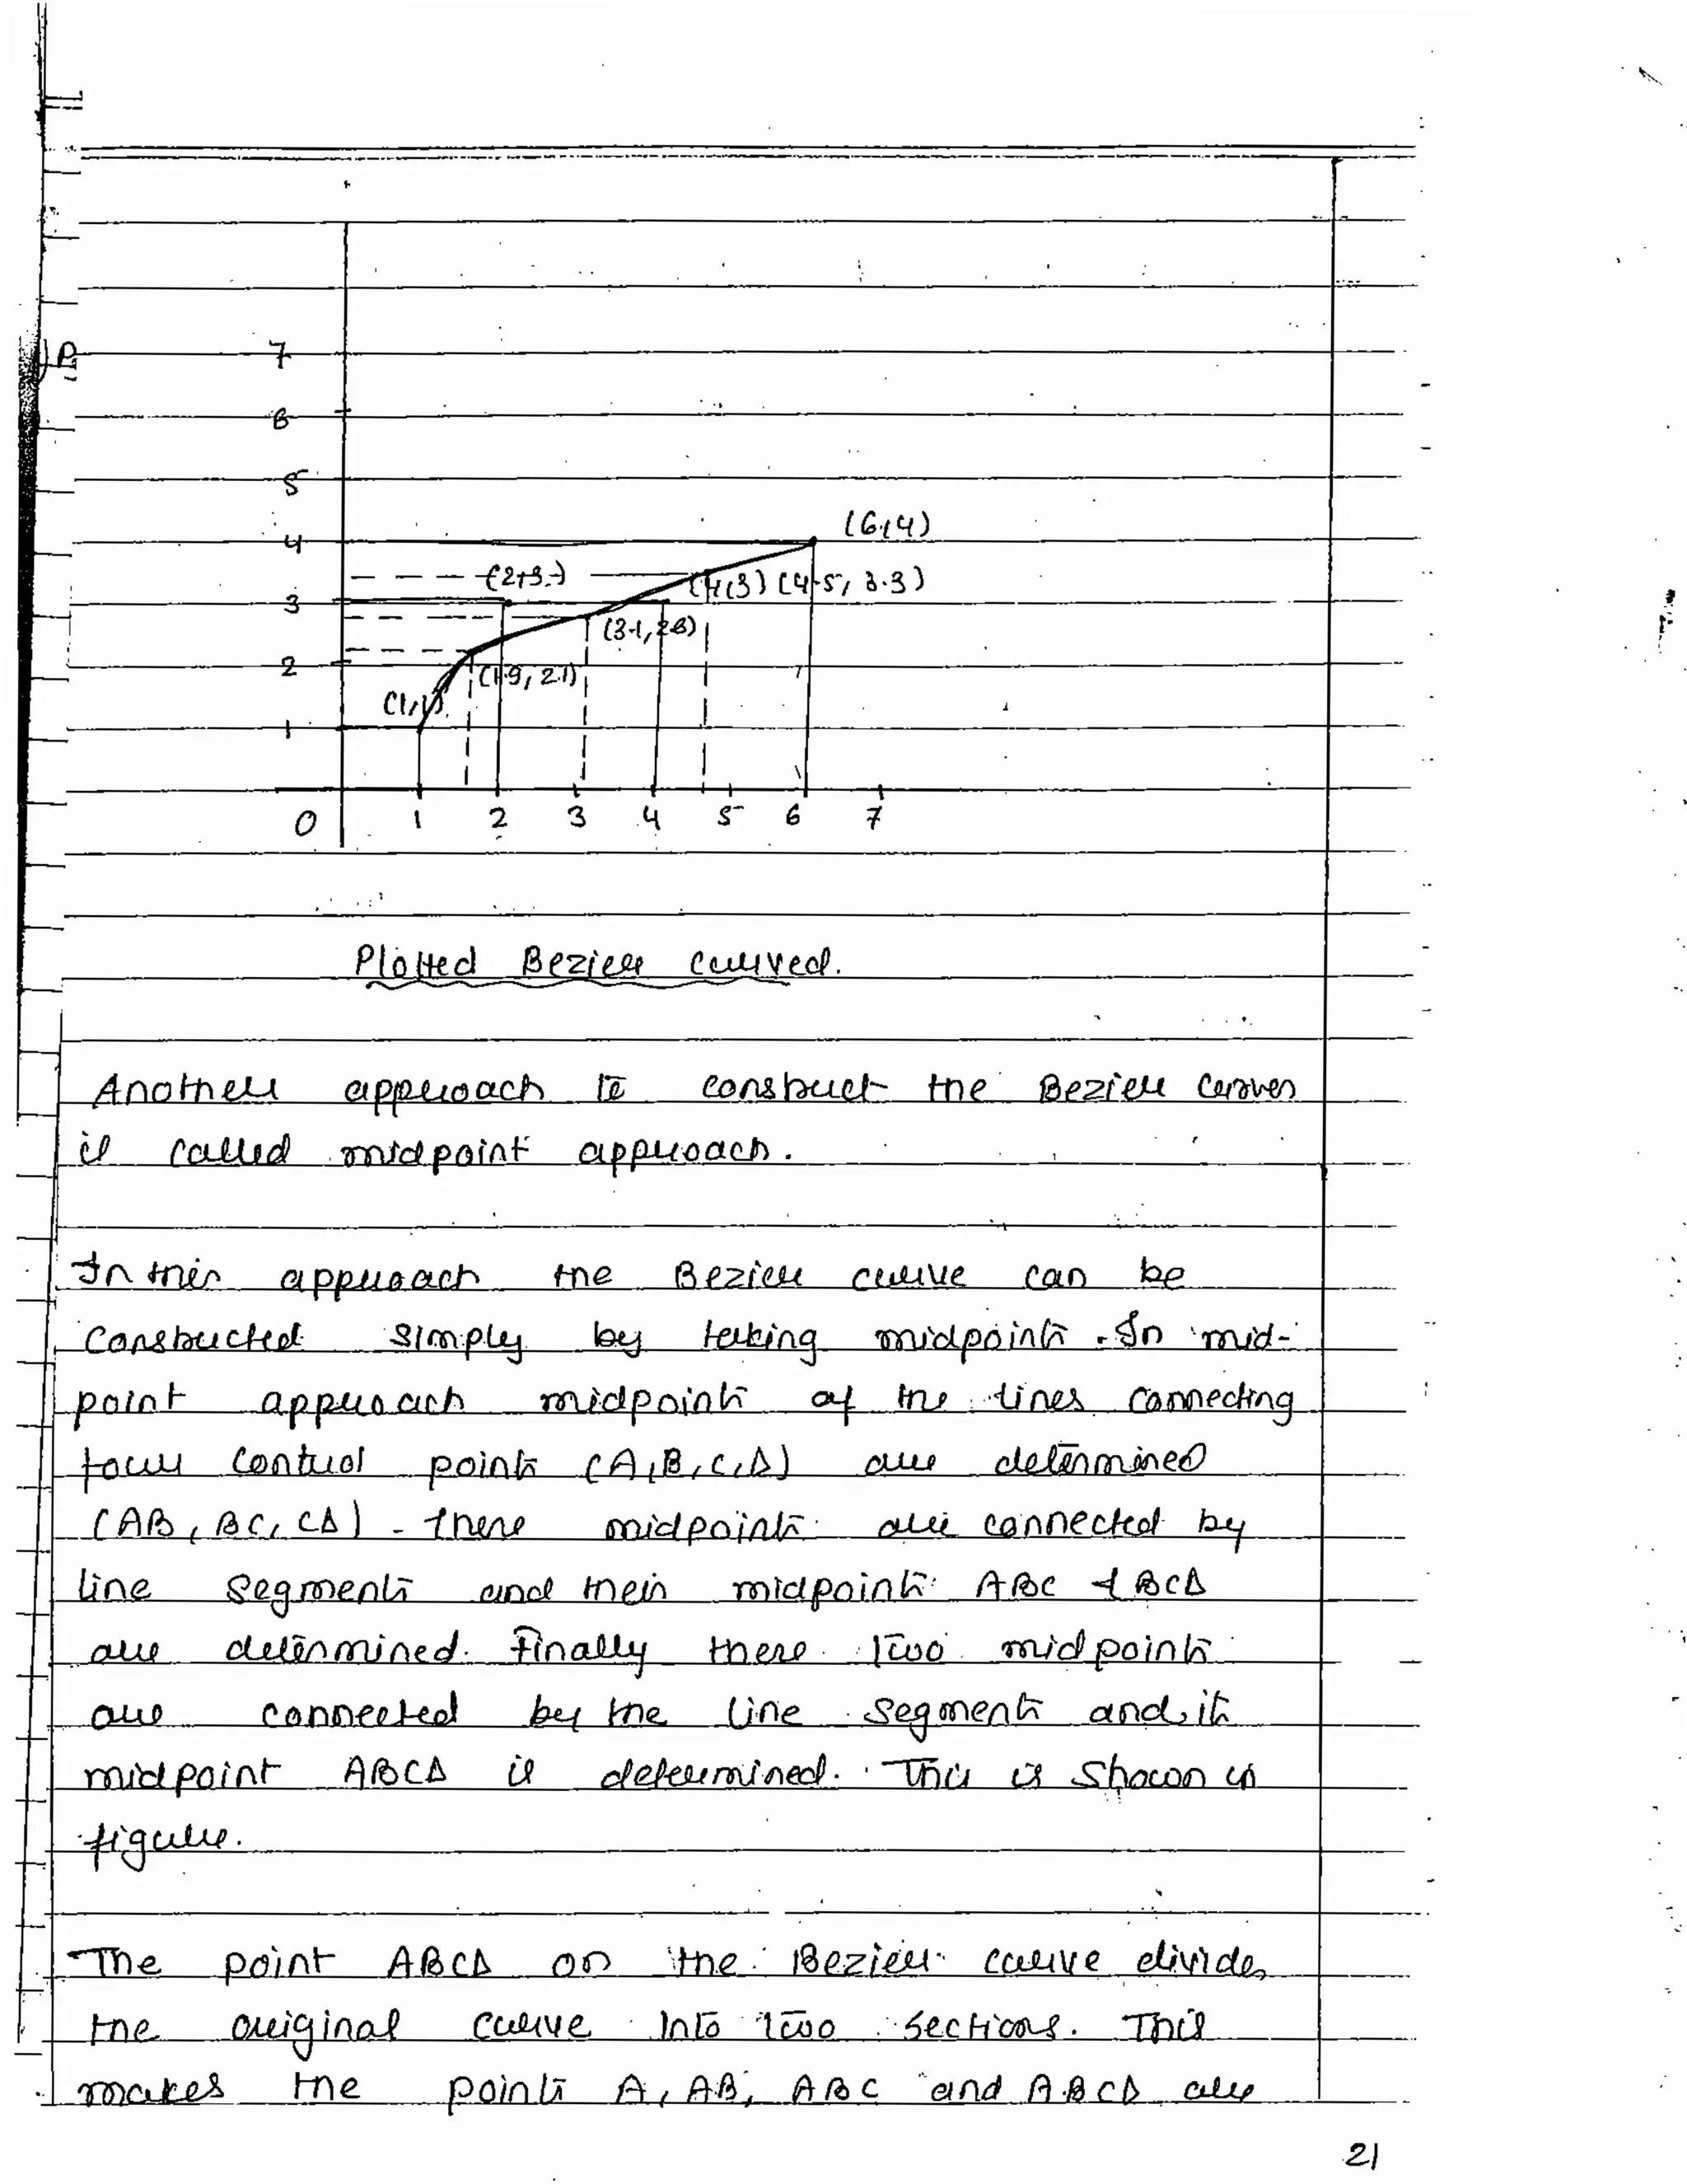 7
6
5
4
(6,4)
(2,3)
(4,3) (4.5, 3.3)
3
(3.1, 2.8)
2
(1.9, 2.1)
(1,1)
1
0 1 2 3 4 5 6 7
Plotted Bezier curved.
Another approach to construct the Bezier curves
is called midpoint approach.
In this approach the Bezier curve can be
constructed simply by taking midpoints. In mid-
point approach midpoints of the lines connecting
four control points (A,B,C,D) are determined
(AB, BC, CD). these midpoints are connected by
line segments and their midpoints ABC & BCD
are determined. Finally these two midpoints
are connected by the line segments and its
midpoint ABCD is determined. This is shown in
figure.
The point ABCD on the Bezier curve divides
the original curve into two sections. This
makes the points A, AB, ABC and ABCD are
21